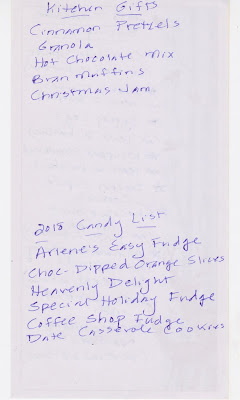 Kitchen Gifts
Cinnamon Pretzels
Granola
Hot Chocolate mix
Bran muffins
Christmas Jam
2018 Candy List
Arlene's Easy Fudge
Choc-Dipped Orange Slices
Heavenly Delight
Special Holiday Fudge
Coffee Shop Fudge
Date Casserole Cookies